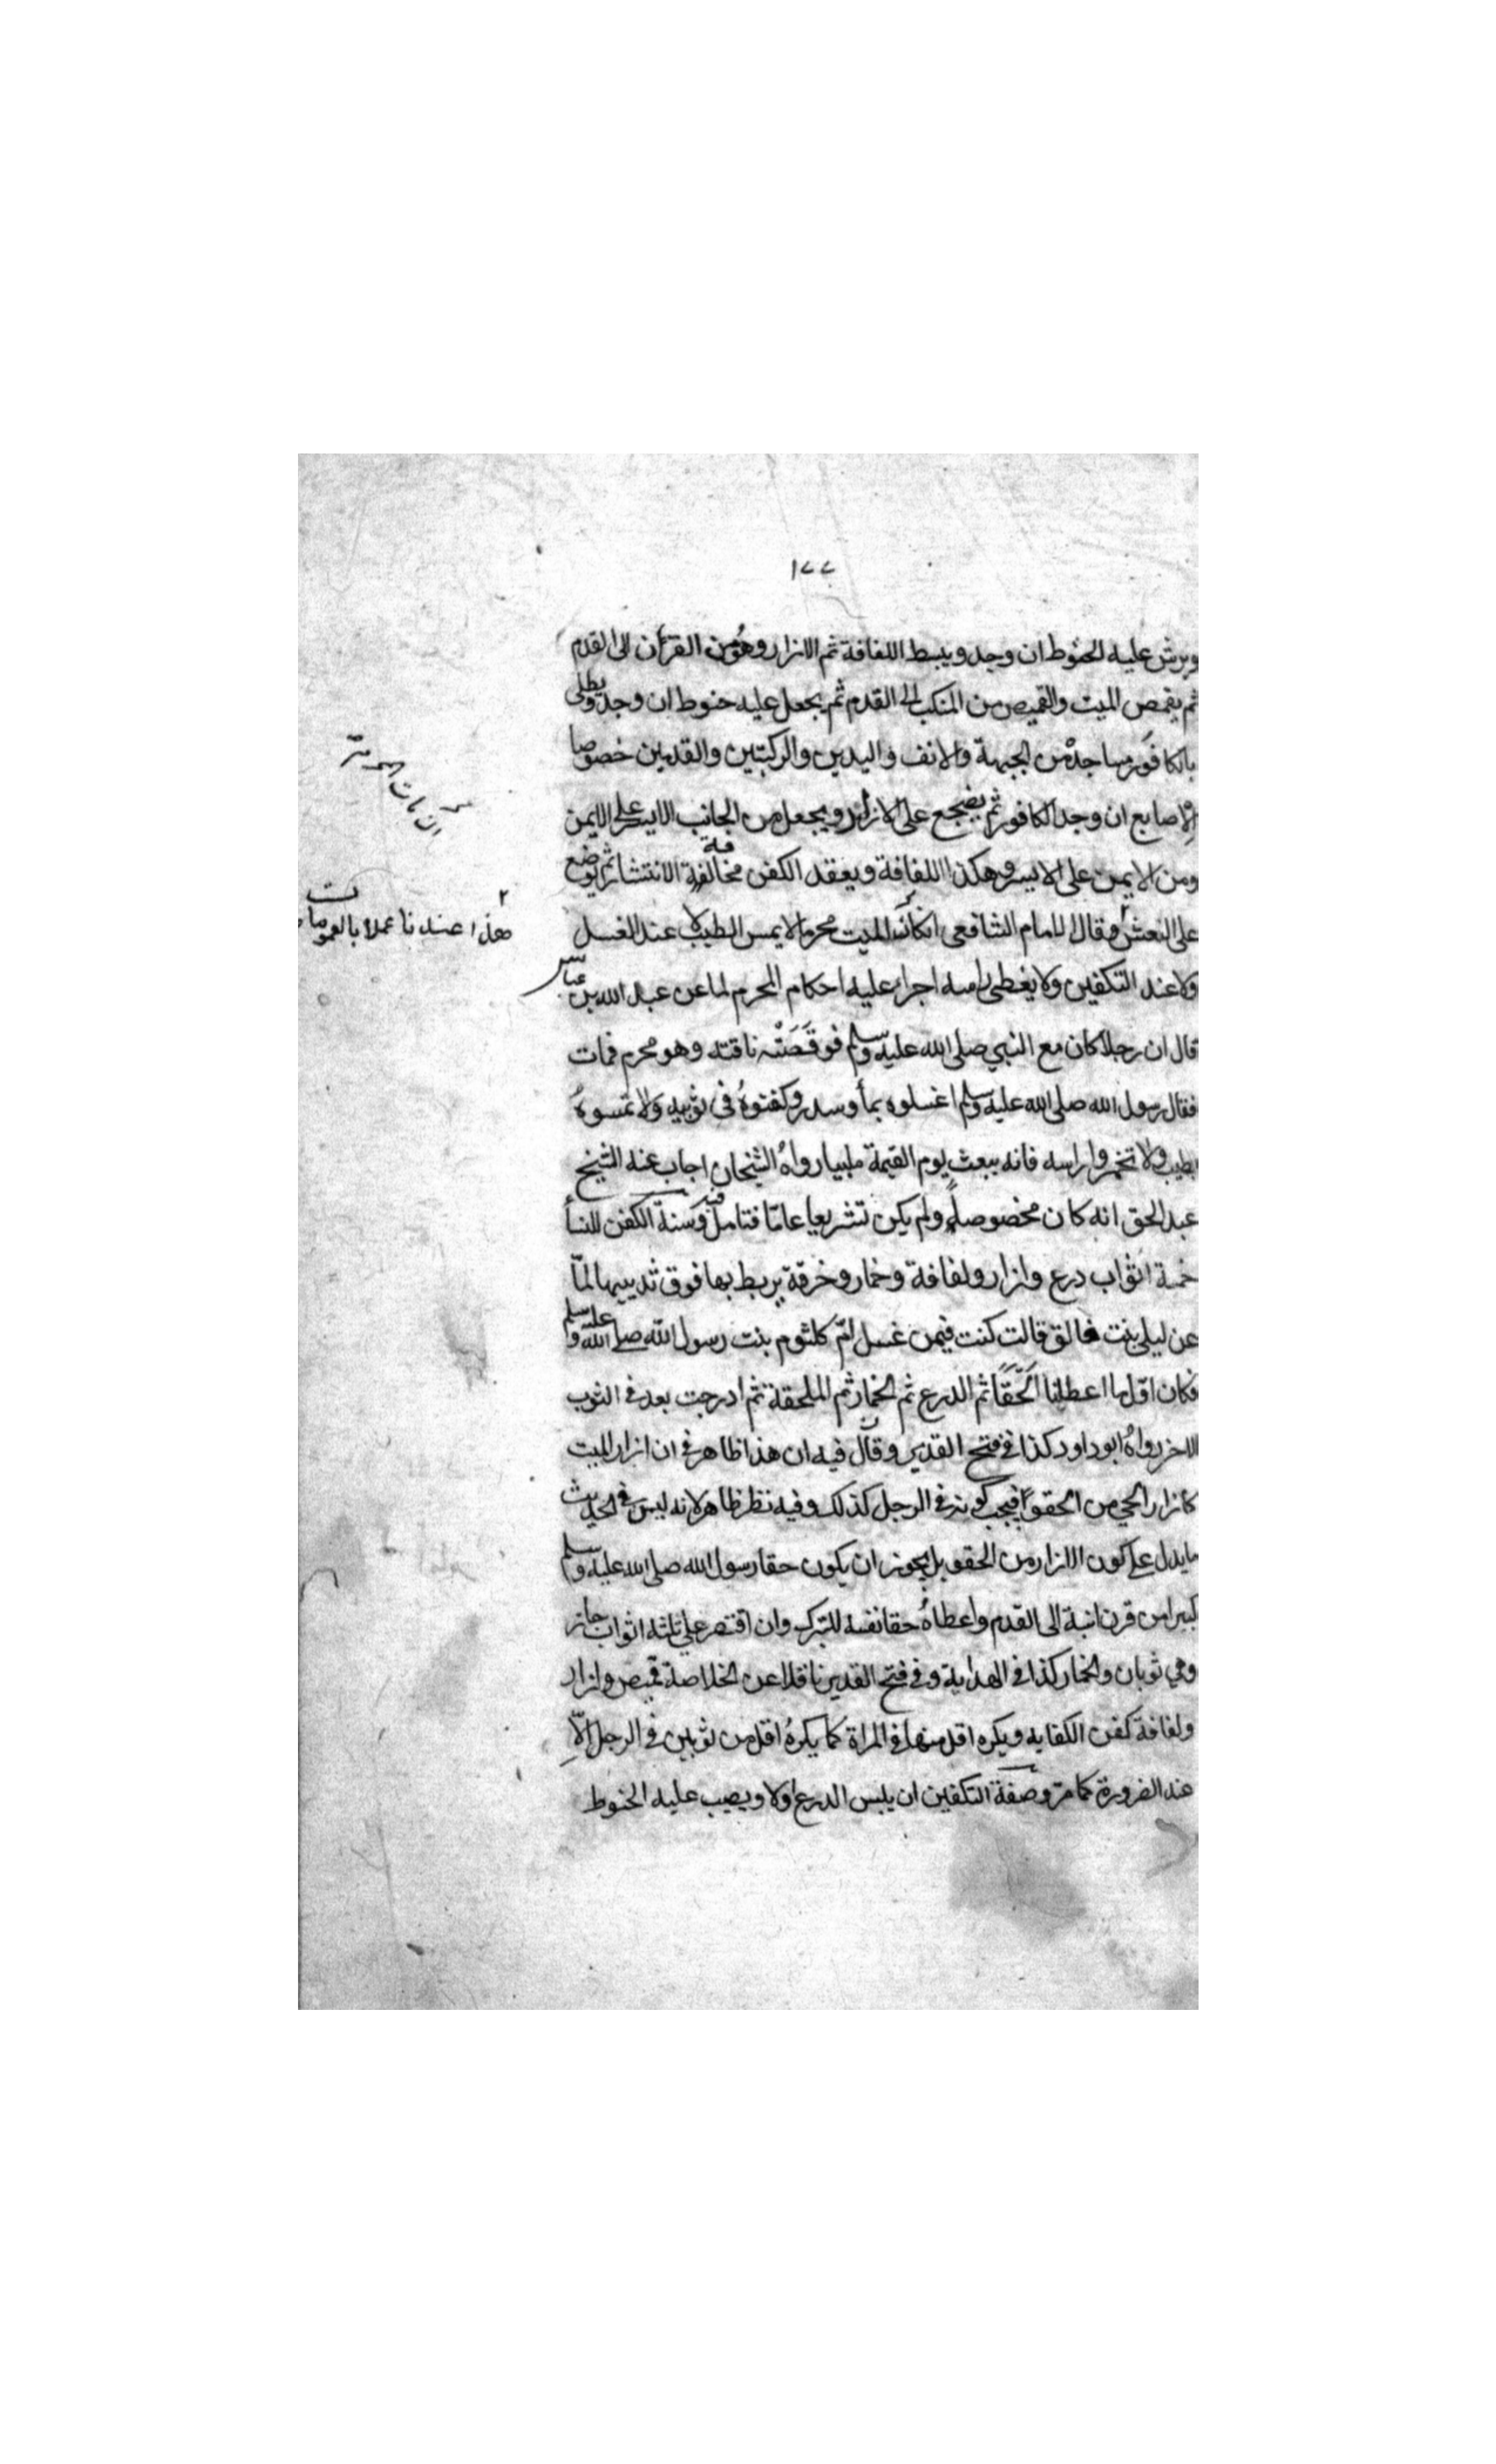 ١٧٧
ويرش عليه الحنوط ان وجد ويبسط اللفافة ثم الازار وهو من القرآن الى القدم
ثم يقمص الميت والقميص من المنكب الى القدم ثم يجعل عليه حنوط ان وجد ويطلى
بالكافور مساجده من الجبهة والانف واليدين والركبتين والقدمين خصوصا
الاصابع ان وجد الكافور ثم يضجع على الازار ويجعل من الجانب الايسر على الايمن
ومن الايمن على الايسر وهكذا اللفافة ويعقد الكفن مخافة الانتشار ثم يوضع
على النعش وقال الامام الشافعى انكان الميت محرما لا يمس الطيب لا عند الغسل
ولا عند التكفين ولا يغطى راسه اجراء عليه احكام المحرم لما عن عبد الله بن عباس
قال ان رجلا كان مع النبي صلى الله عليه وسلم فوقَصَتْه ناقته وهو محرم فمات
فقال رسول الله صلى الله عليه وسلم اغسلوه بماء وسدر وكفنوهُ فى ثوبيه ولا تمسوهُ
بطيب ولا تخمروا راسه فانه يبعث يوم القيمة ملبيا رواهُ الشيخان اجاب عنه الشيخ
عبد الحق انه كان مخصوصا له ولم يكن تشريعا عامّا فتامل فيه وسنة الكفن للنساء
خمسة اثواب درع وازار ولفافة وخمار وخرقة يربط بها فوق ثدييها لمّا
عن ليلى بنت قالت كنت فيمن غسل امّ كلثوم بنت رسول الله صلى الله عليه وسلم
فكان اوّل ما اعطانا الحَقَا ثم الدرع ثم الخمار ثم الملحفة ثم ادرجت بعد فى الثوب
الاخر رواهُ ابو داود كذا فى فتح القدير وقال فيه ان هذا ظاهر فى ان ازار الميت
كازار الحي من الحقو فيجب كونه فى الرجل كذلك وفيه نظر ظاهر لانه ليس فى الحديث
ما يدل على كون الازار من الحقو بل يجوز ان يكون حقا رسول الله صلى الله عليه وسلم
كبيرا من قرن ابنته الى القدم واعطاهُ حقا نفسه للتبرك وان اقتصر على ثلثة اثواب جاز
وهي ثوبان والخمار كذا فى الهداية وفى فتح القدير ناقلا عن الخلاصة قميص وازار
ولفافة كفن الكفايه ويكره اقل منها فى المراة كما يكرهُ اقل من ثوبين فى الرجل الّا
عند الضرورة كما مرّ وصفة التكفين ان يلبس الدرع اولا ويصب عليه الحنوط
٢
هذا عندنا عملا بالعمومات